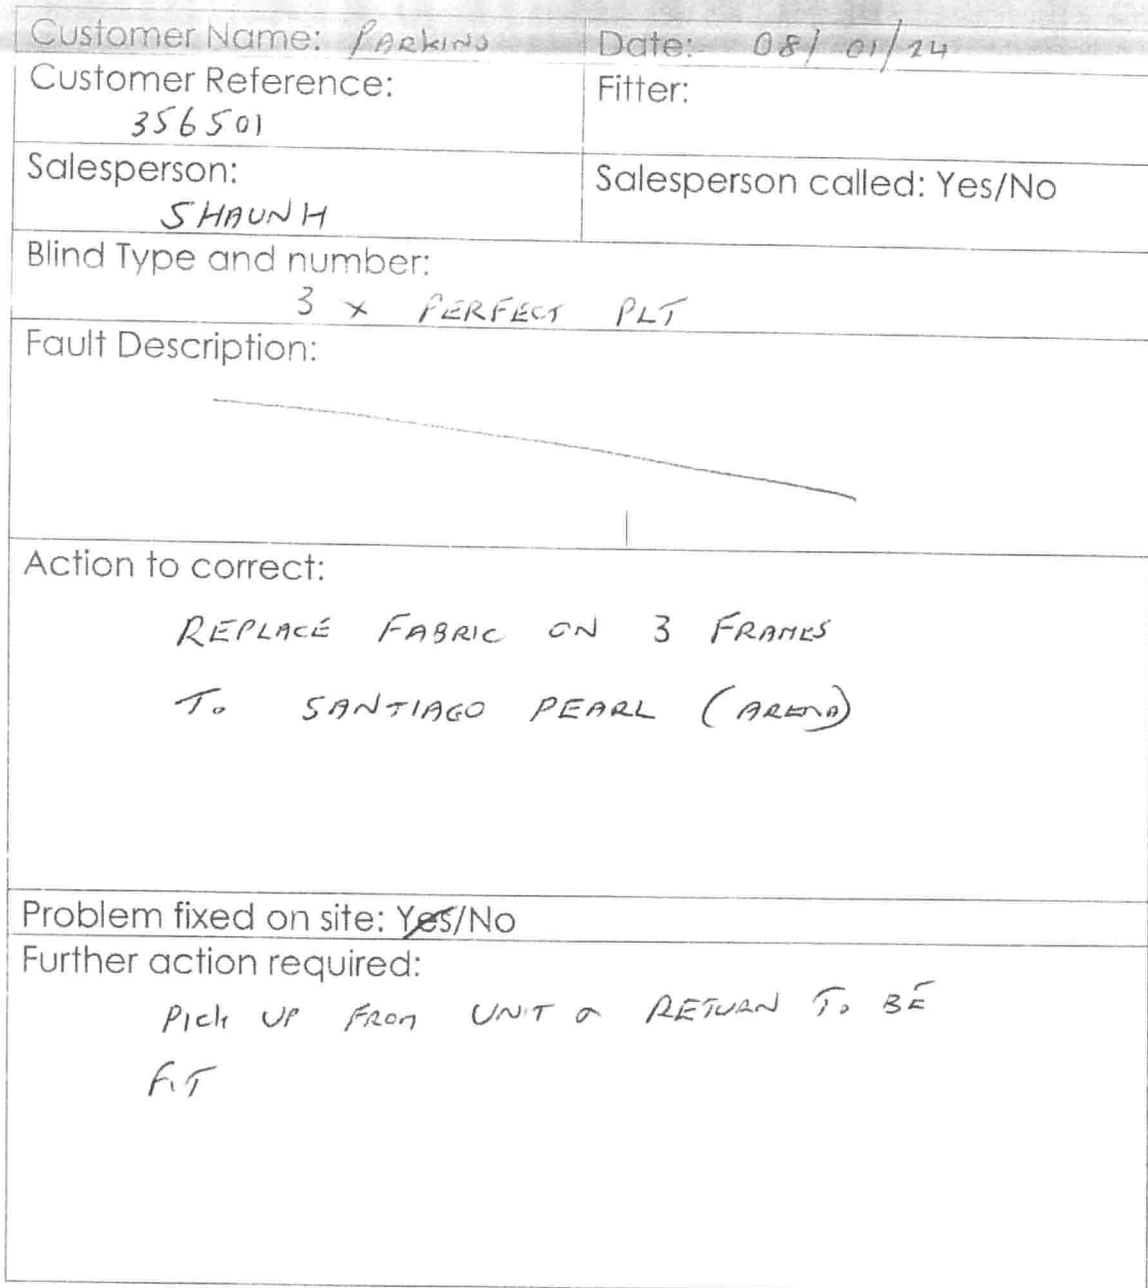 Customer Name: PARKINS Date: 08/01/24
Customer Reference: Fitter:
356501
Salesperson: Salesperson called: Yes/No
SHAUN H
Blind Type and number:
3 x PERFECT PLT
Fault Description:
Action to correct:
REPLACE FABRIC ON 3 FRAMES
To SANTIAGO PEARL (ARENA)
Problem fixed on site: Yes/No
Further action required:
Pick UP FROM UNIT & RETURN To BE
FIT